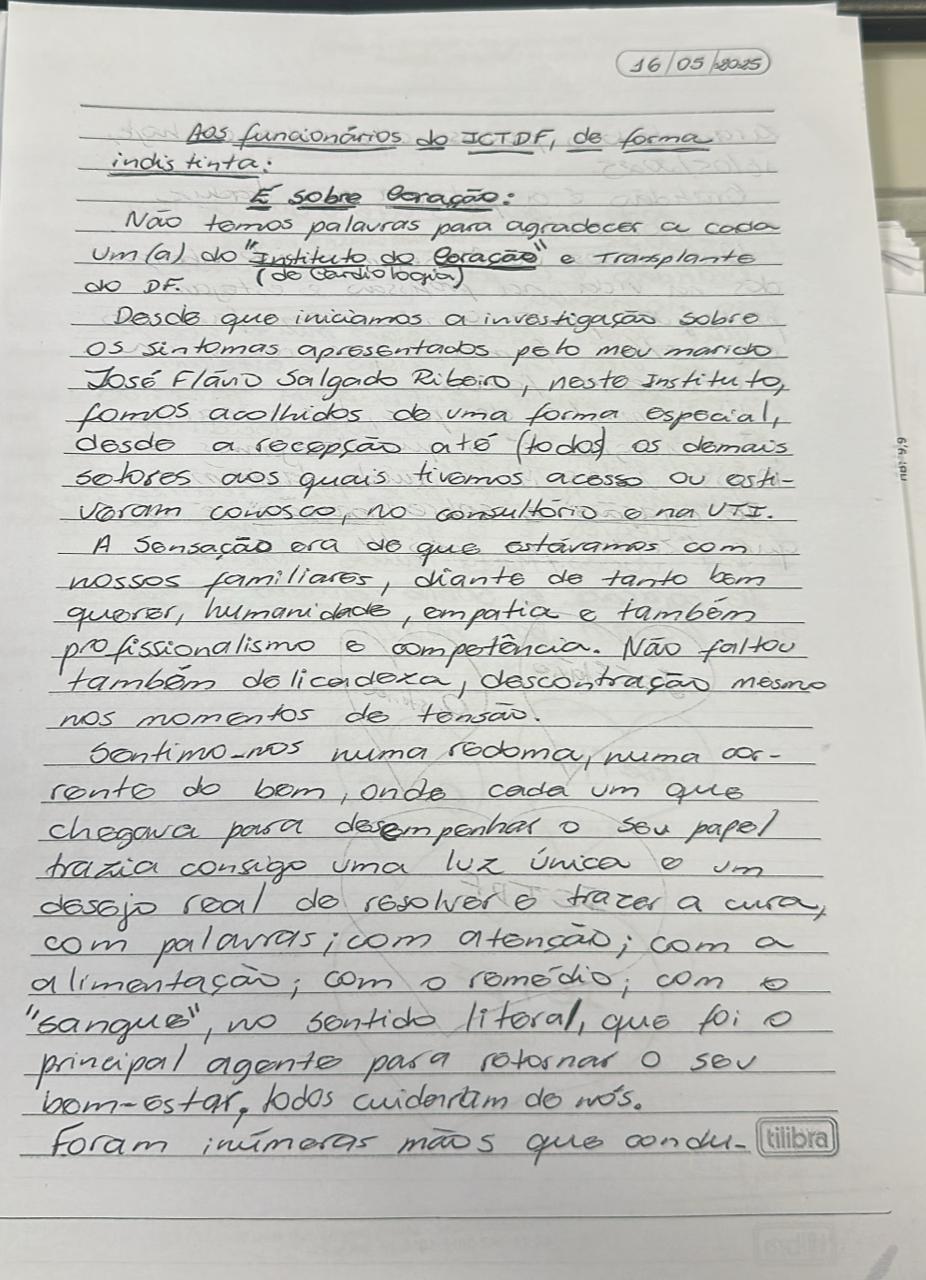 16/05/2025
Aos funcionários do ICTDF, de forma
indistinta:
É sobre Coração:
Não temos palavras para agradecer a cada
um(a) do "Instituto do Coração" e Transplante
(de Cardiologia)
do DF.
Desde que iniciamos a investigação sobre
os sintomas apresentados pelo meu marido
José Flávio Salgado Ribeiro, neste Instituto,
fomos acolhidos de uma forma especial,
desde a recepção até (todos) os demais
setores aos quais tivemos acesso ou esti-
veram conosco, no consultório e na UTI.
A sensação era de que estávamos com
nossos familiares, diante de tanto bem
querer, humanidade, empatia e também
profissionalismo e competência. Não faltou
também delicadeza, descontração mesmo
nos momentos de tensão.
Sentimo-nos numa redoma, numa cor-
rente do bem, onde cada um que
chegava para desempenhar o seu papel
trazia consigo uma luz única e um
desejo real de resolver e trazer a cura,
com palavras; com atenção; com a
alimentação; com o remédio; com o
"sangue", no sentido literal, que foi o
principal agente para retornar o seu
bem-estar, todos cuidaram de nós.
Foram inúmeras mãos que condu-
tilibra